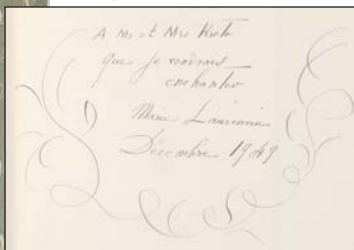 A Mr et Mrs
que je voudrais
enchanter
Marie Laurencin
Décembre 1949